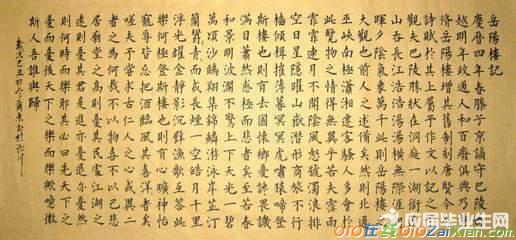 岳陽樓記
慶曆四年春滕子京謫守巴陵郡
越明年政通人和百廢俱興乃重
脩岳陽樓增其舊制刻唐賢今人
詩賦於其上屬予作文以記之予
觀夫巴陵勝狀在洞庭一湖銜遠
山吞長江浩浩湯湯橫無際涯朝
暉夕陰氣象萬千此則岳陽樓之
大觀也前人之述備矣然則北通
巫峽南極瀟湘遷客騷人多會於
此覽物之情得無異乎若夫霪雨
霏霏連月不開陰風怒號濁浪排
空日星隱曜山嶽潛形商旅不行
檣傾楫摧薄暮冥冥虎嘯猿啼登
斯樓也則有去國懷鄉憂讒畏譏
滿目蕭然感極而悲者矣至若春
和景明波瀾不驚上下天光一碧
萬頃沙鷗翔集錦鱗游泳岸芷汀
蘭青青而或長煙一空皓月千里
浮光耀金靜影沉璧漁歌互答此
樂何極登斯樓也則有心曠神怡
寵辱皆忘把酒臨風其喜洋洋者矣
嗟夫予嘗求古仁人之心或異二
者之為何哉不以物喜不以己悲
居廟堂之高則憂其民處江湖之
遠則憂其君是進亦憂退亦憂然
則何時而樂耶其必曰先天下之
憂而憂後天下之樂而樂歟噫微
斯人吾誰與歸
歲次己丑初冬
应届毕业生网
oio在线oiozaixian.com